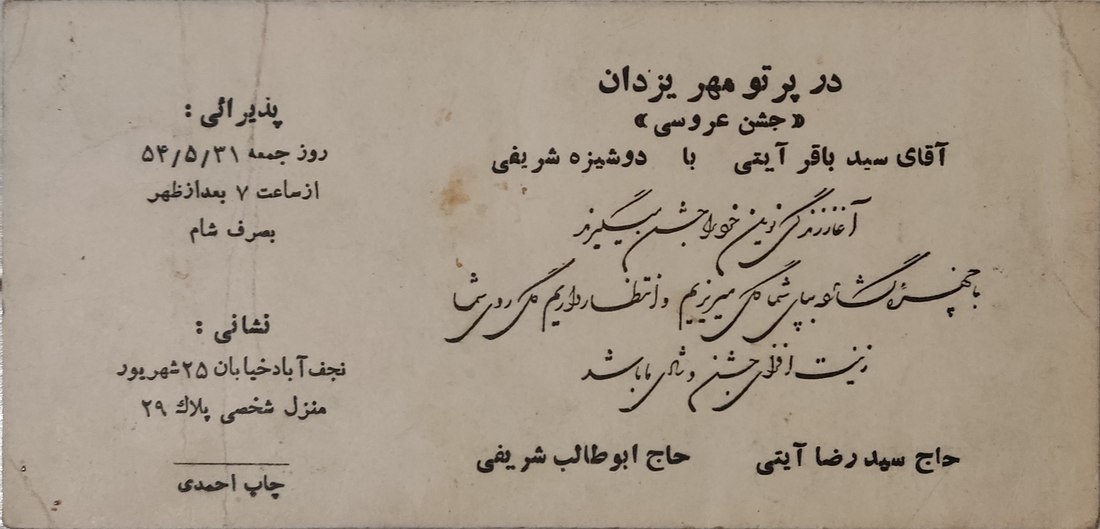 در پرتو مهر یزدان
«جشن عروسی»
آقای سید باقر آیتی با دوشیزه شریفی
آغاز زندگی نوین خود را جشن میگیرند
با چهره گشاده بپای شما گل میریزیم و انتظار داریم گل روی شما
زینت افزای جشن و شادی ما باشد
حاج سید رضا آیتی حاج ابوطالب شریفی
پذیرائی :
روز جمعه ۵۴/۵/۳۱
از ساعت ۷ بعدازظهر
بصرف شام
نشانی :
نجف آباد خیابان ۲۵ شهریور
منزل شخصی پلاك ۲۹
چاپ احمدی